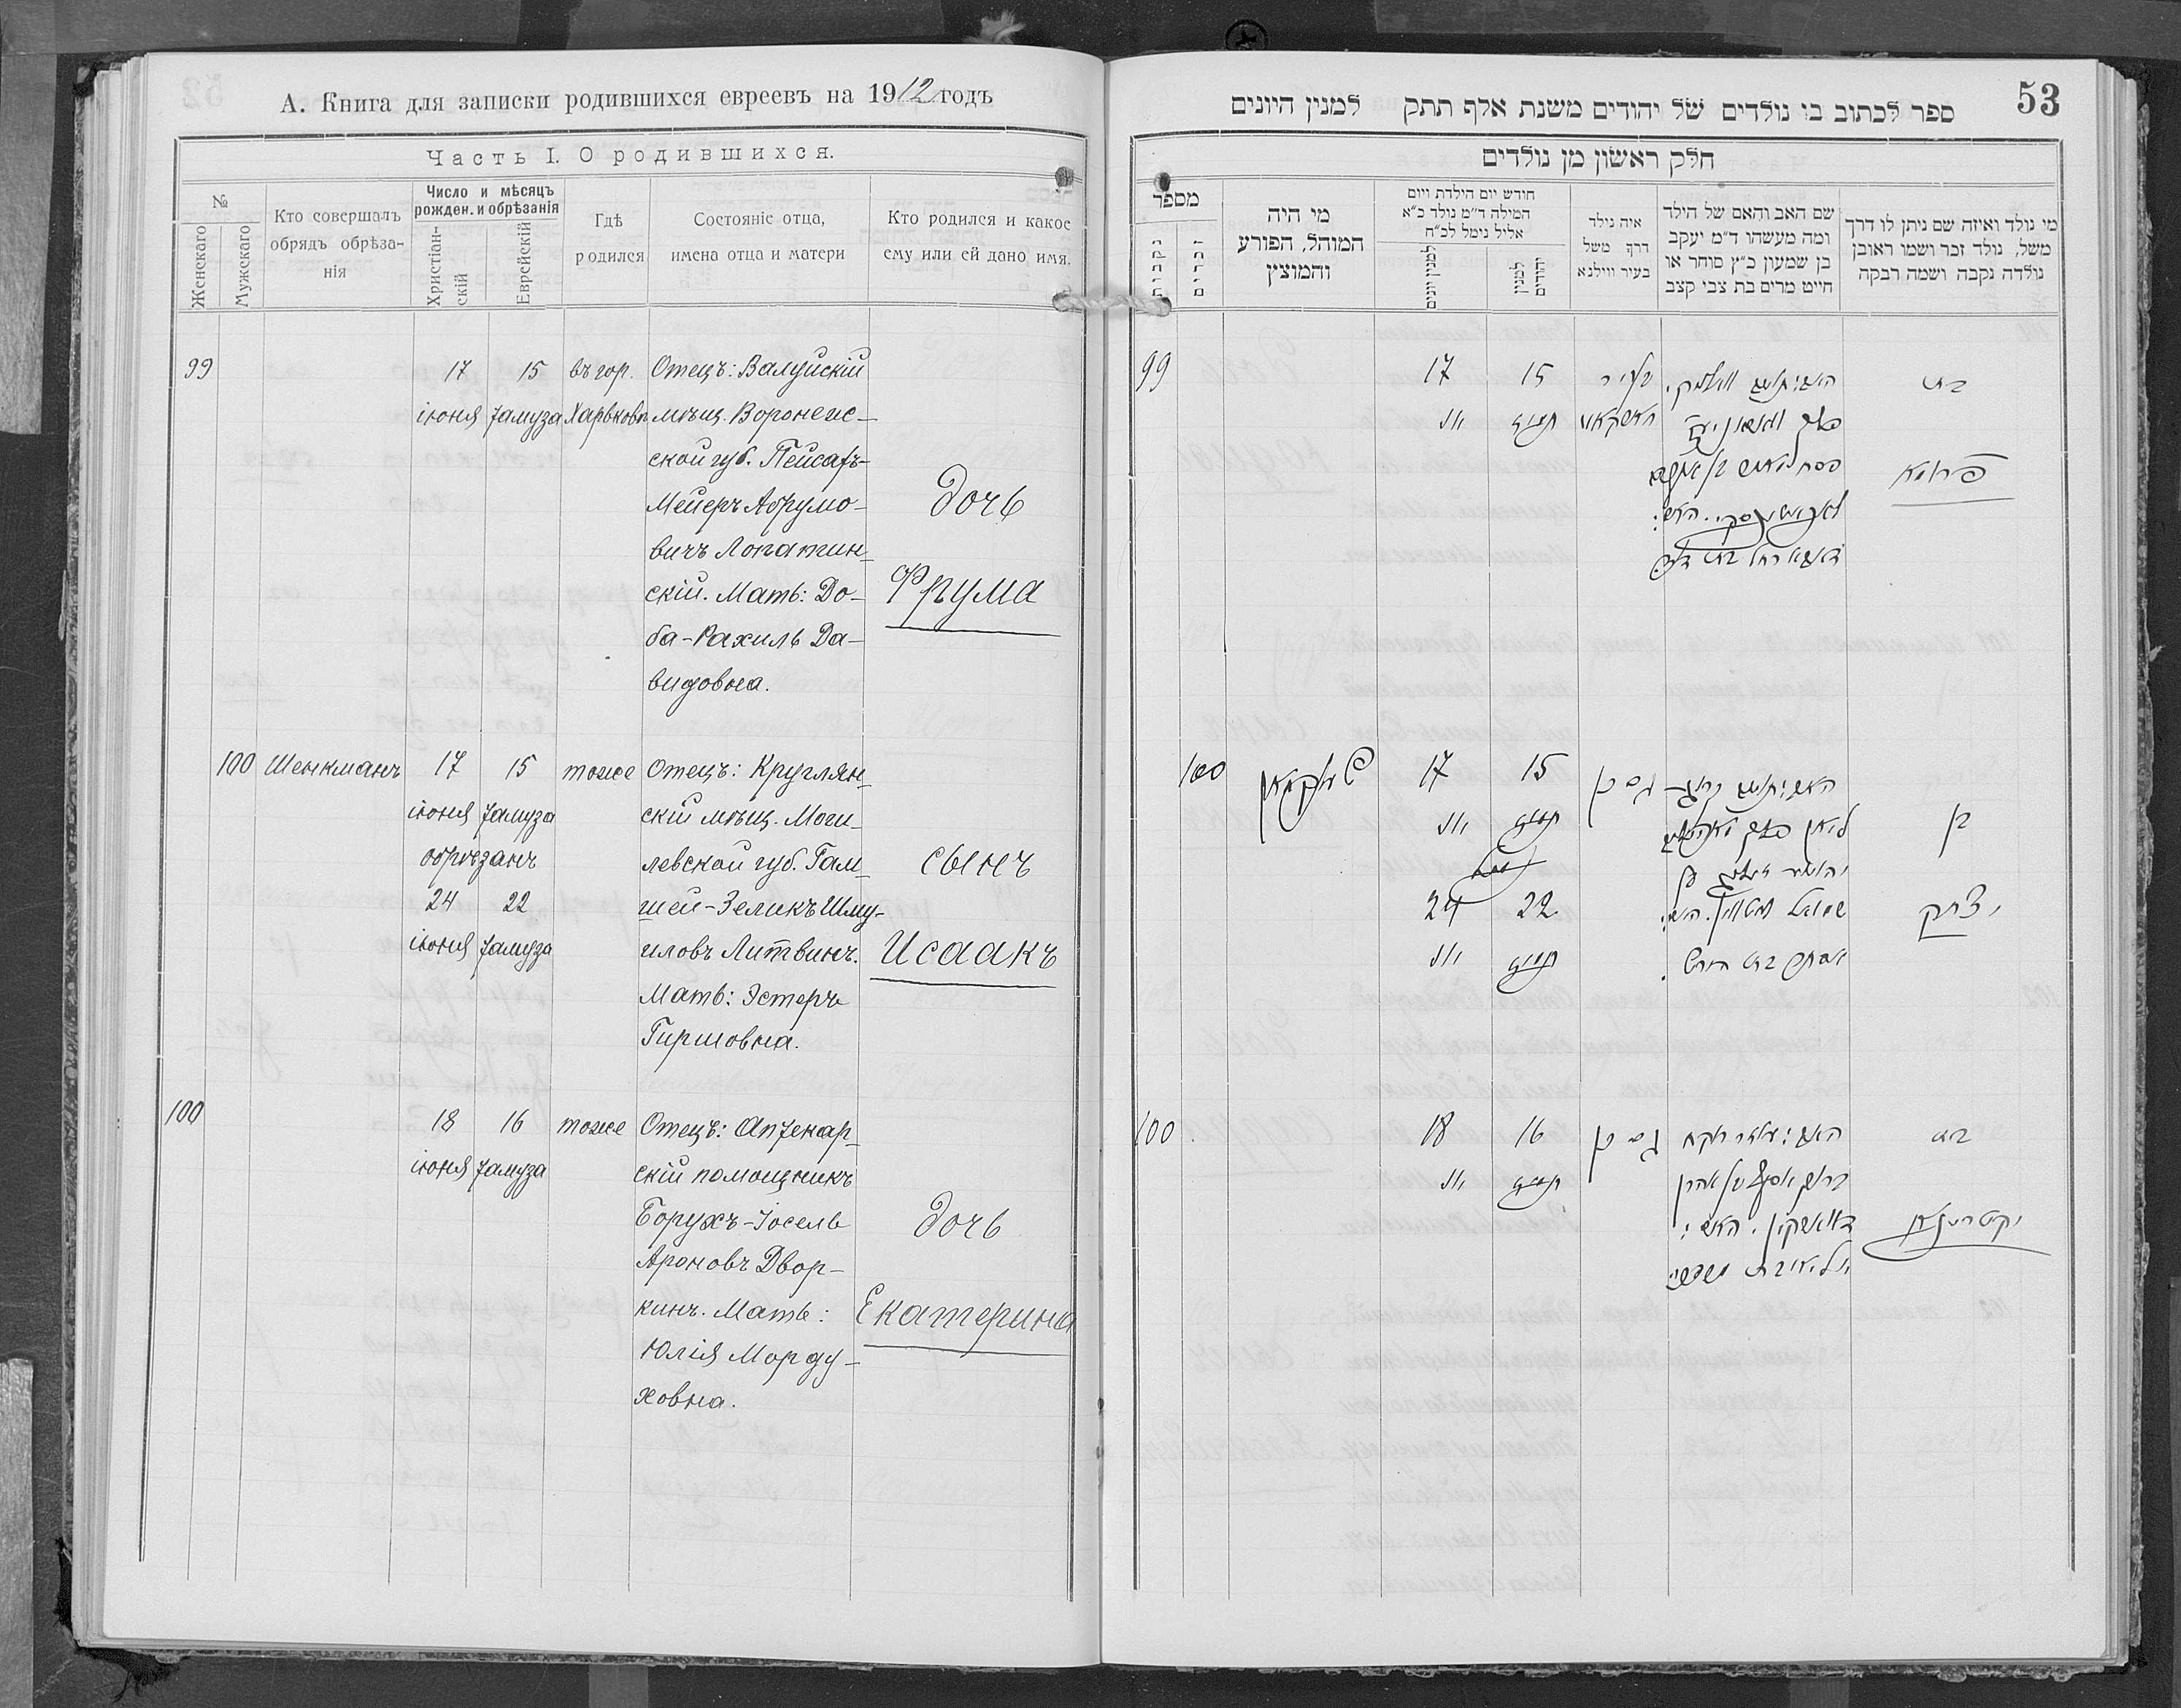 А. Книга для записки родившихся евреевъ на 1912 годъ
Часть I. О родившихся.
№
Женскаго
Мужскаго
Кто совершалъ
обрядъ обрѣза-
нія
Число и мѣсяцъ
рожден. и обрѣзанія
Христіан-
скій
Еврейскій
Гдѣ
родился
Состояніе отца,
имена отца и матери
Кто родился и какое
ему или ей дано имя.
99
17
іюня
15
Тамуза
въ гор.
Харьковѣ
Отецъ: Валуйскій
мѣщ. Воронеж-
ской губ. Пейсахъ-
Мейеръ Абрумо-
вичъ Лопатин-
скій. Мать: До-
ба-Рахиль Да-
видовна.
дочь
Фрума
100
Шенкманъ
17
іюня
15
Тамуза
обрѣзанъ
24
іюня
22
Тамуза
тоже
Отецъ: Круглян-
скій мѣщ. Моги-
левской губ. Гам-
шей-Зеликъ Шму-
иловъ Литвинъ.
Мать: Эстеръ
Гиршовна.
сынъ
Исаакъ
100
18
іюня
16
Тамуза
тоже
Отецъ: Аптекар-
скій помощникъ
Борухъ-Іосель
Ароновъ Двор-
кинъ. Мать:
Юлія Морду-
ховна.
дочь
Екатерина
53
ספר לכתוב בו נולדים של יהודים משנת אלף תתק למנין היונים
חלק ראשון מן נולדים
מספר
נקבות
זכרים
מי היה
המוהל, הפורע
והמוצץ
חודש יום הילדת ויום
המילה ד״מ נולד כ״א
אליל נימל לכ״ח
למנין יונים
למנין
יהודים
איה נולד
דרך משל
בעיר ווילנא
שם האב והאם של הילד
ומה מעשהו ד״מ יעקב
בן שמעון כ״ץ סוחר או
חייט מרים בת צבי קצב
מי נולד ואיזה שם ניתן לו דרך
משל, נולד זכר ושמו ראובן
נולדה נקבה ושמה רבקה
99
17
יוני
15
תמוז
בעיר
חארקאוו
בת
פרומא
100
שענקמאן
17
יוני
15
תמוז
נימול
24
יוני
22
תמוז
גם כן
בן
יצחק
100
18
יוני
16
תמוז
גם כן
בת